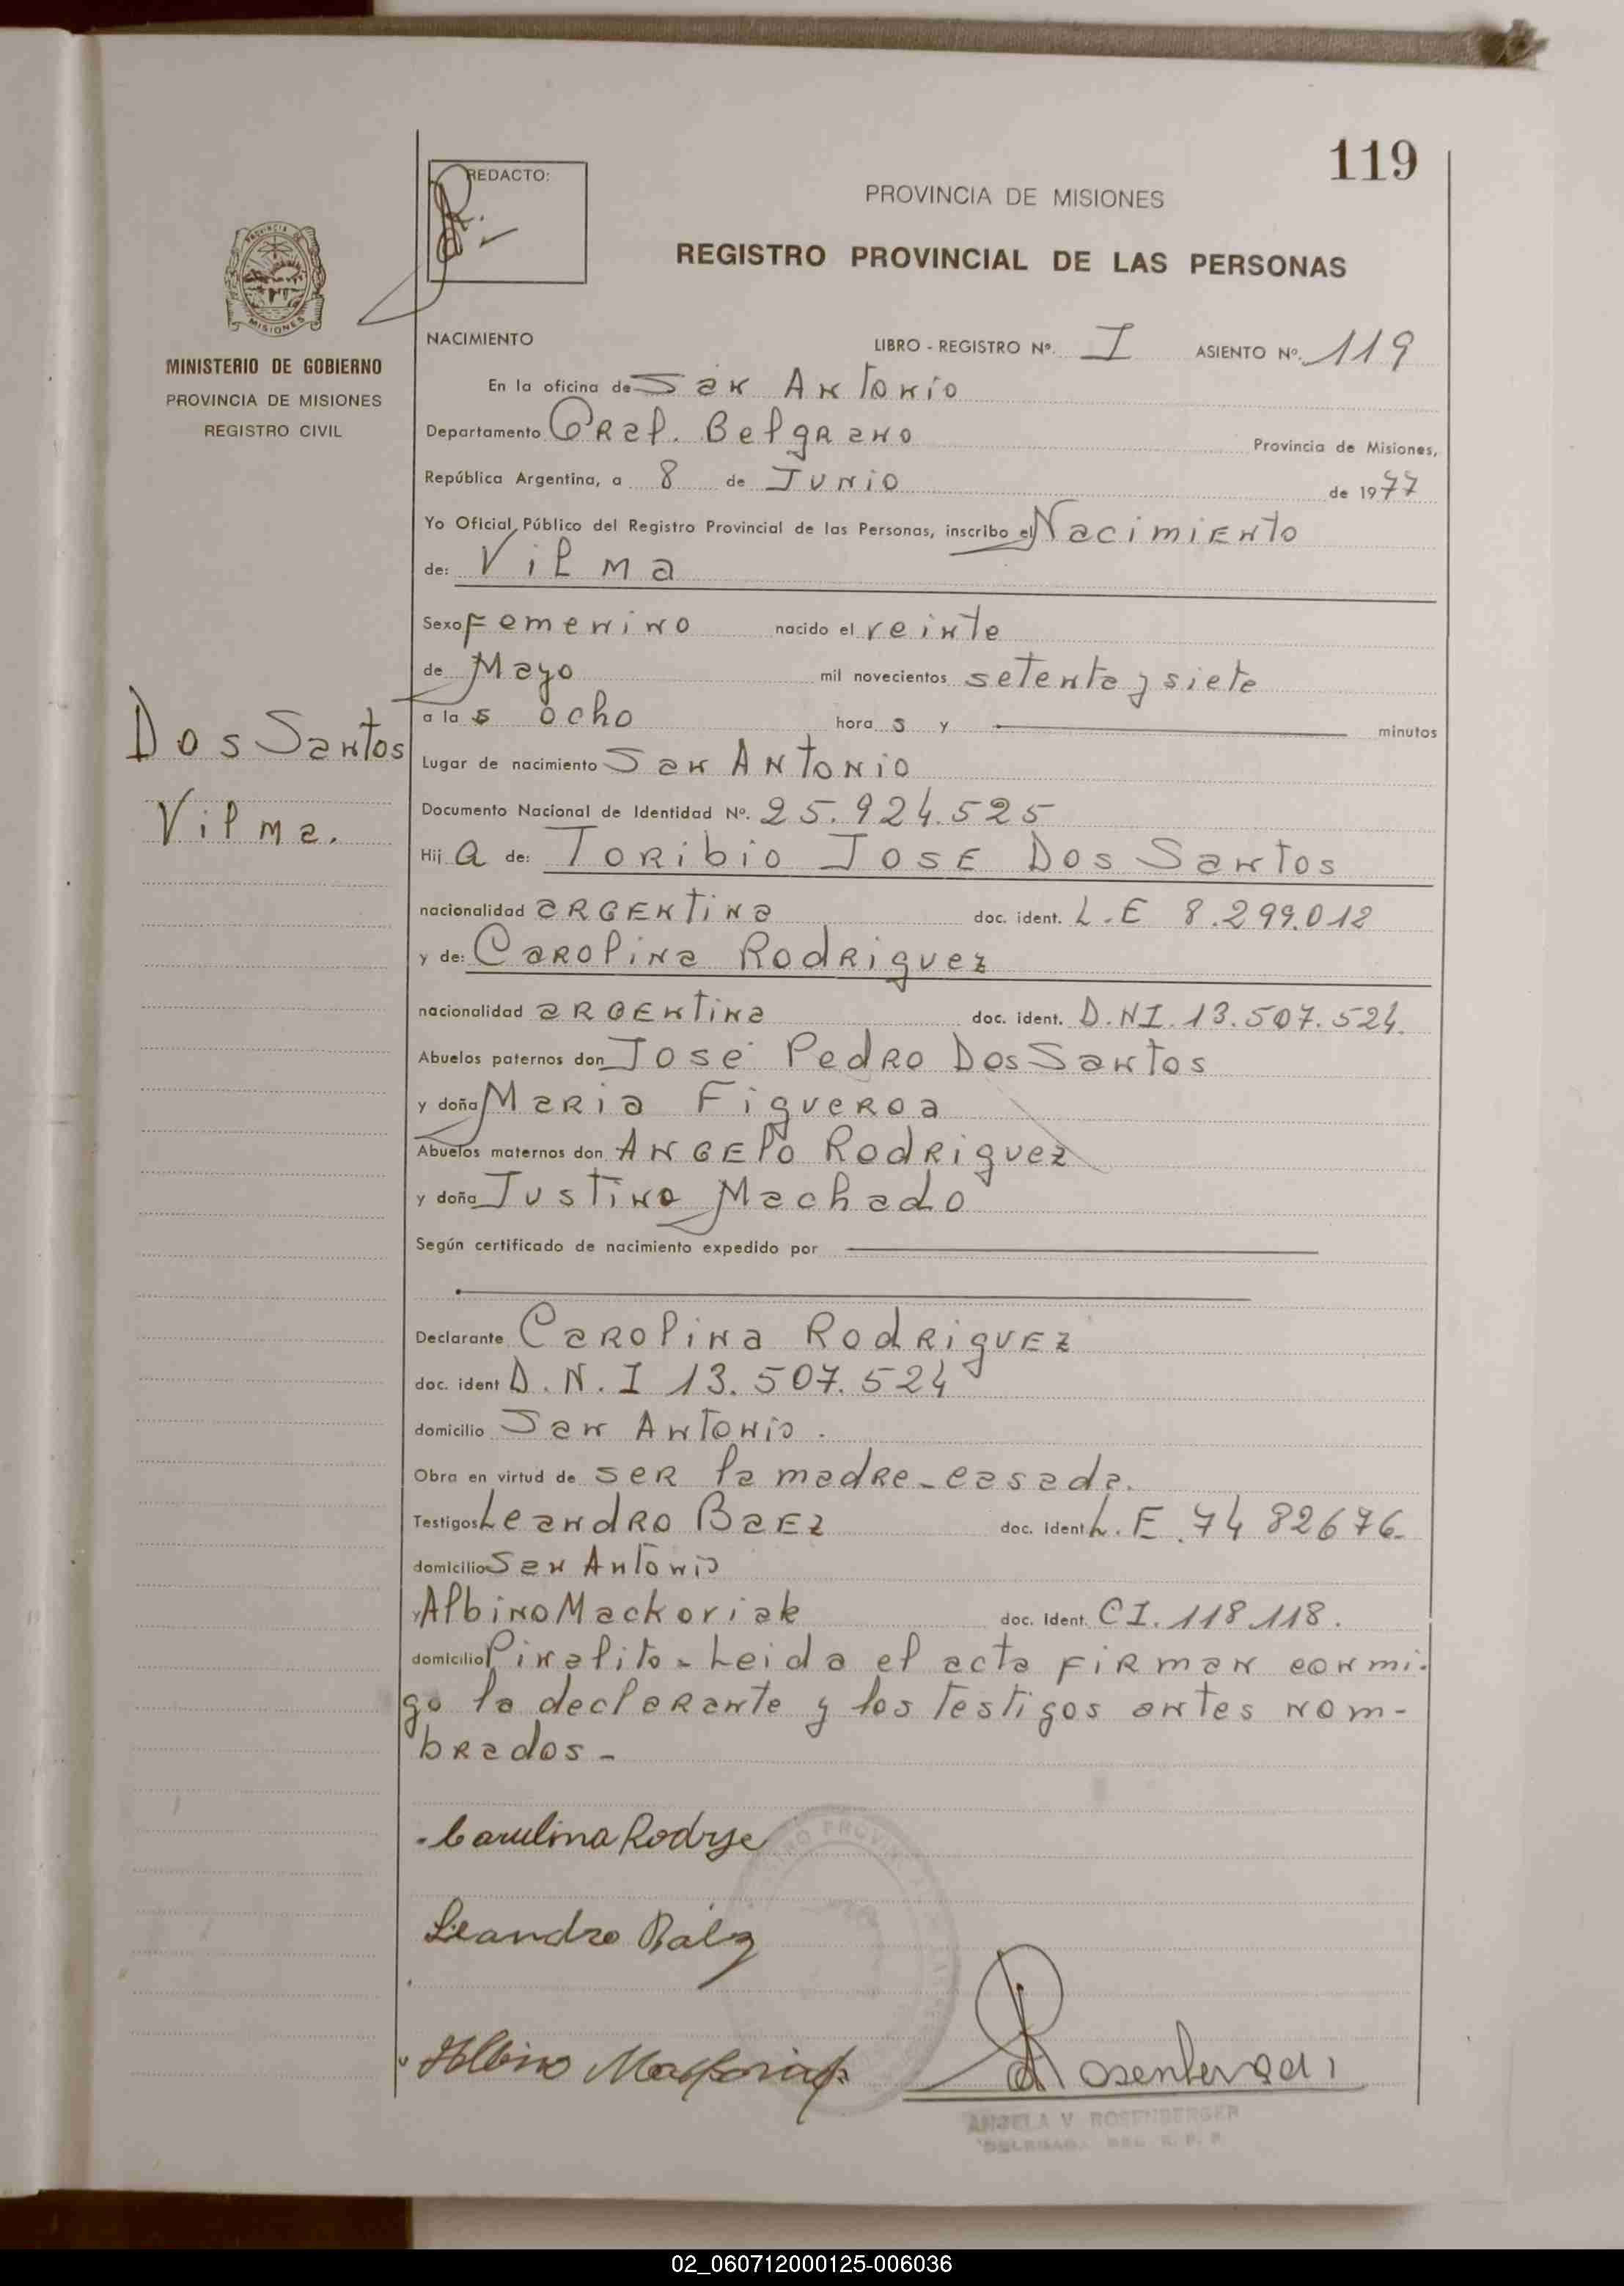 119
REDACTO:
PROVINCIA DE MISIONES
REGISTRO PROVINCIAL DE LAS PERSONAS
MISIONES
MINISTERIO DE GOBIERNO
PROVINCIA DE MISIONES
REGISTRO CIVIL
NACIMIENTO LIBRO - REGISTRO Nº. I ASIENTO Nº. 119
En la oficina de San Antonio
Departamento Gral. Belgrano Provincia de Misiones,
República Argentina, a 8 de Junio de 1977
Yo Oficial Público del Registro Provincial de las Personas, inscribo el Nacimiento
de: Vilma
Sexo Femenino nacido el veinte
de Mayo mil novecientos setenta y siete
a las ocho horas y minutos
Dos Santos
Vilma.
Lugar de nacimiento San Antonio
Documento Nacional de Identidad Nº. 25.924.525
Hija de: Toribio Jose Dos Santos
nacionalidad argentina doc. ident. L.E 8.299.012
y de: Carolina Rodriguez
nacionalidad argentina doc. ident. D.NI.13.507.524.
Abuelos paternos don José Pedro Dos Santos
y doña Maria Figueroa
Abuelos maternos don Angelo Rodriguez
y doña Justina Machado
Según certificado de nacimiento expedido por
Declarante Carolina Rodriguez
doc. ident D.N.I 13.507.524
domicilio San Antonio.
Obra en virtud de ser la madre-casada.
Testigos Leandro Baez doc. ident L.E.7482676.
domicilio San Antonio
y Albino Mackoviak doc. Ident. CI.118118.
domicilio Piñalito-Leida el acta firman conmi-
go la declarante y los testigos antes nom-
brados-
Carulina Rodrge
Leandro Balz
Albino
ANGELA V. ROSENBERGER
02_060712000125-006036